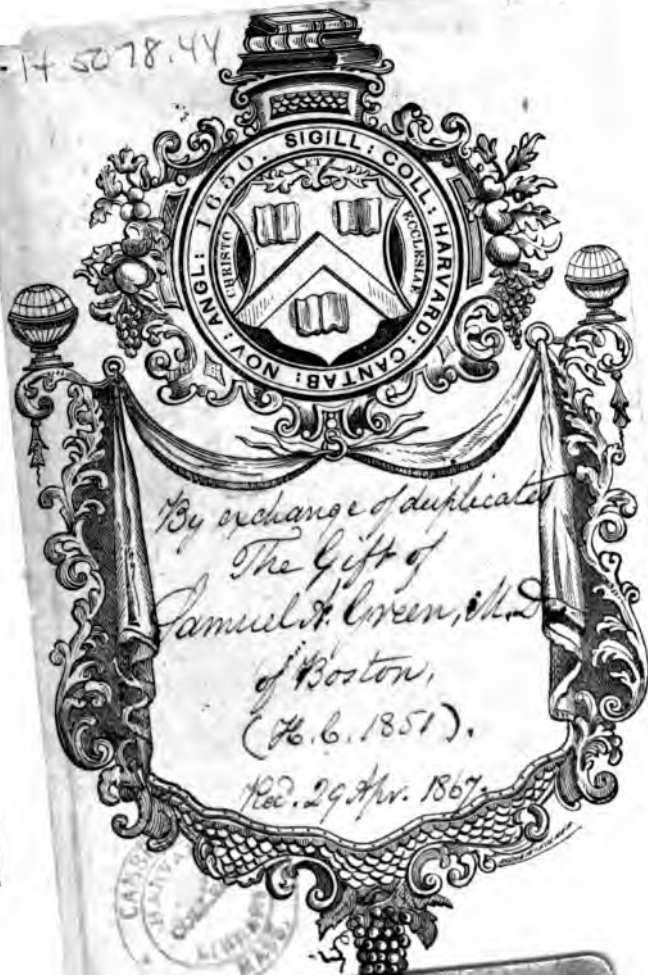 5078.44
SIGILL: COLL: HARVARD: CANTAB: NOV: ANGL: 1650.
ET
CHRISTO
ECCLESIÆ
By exchange of duplicates
The Gift of
Samuel A. Green, M.D.
of Boston,
(H.C. 1851).
Rec'd. 29 Apr. 1867.
HARVA
LIBRARY
MASS.